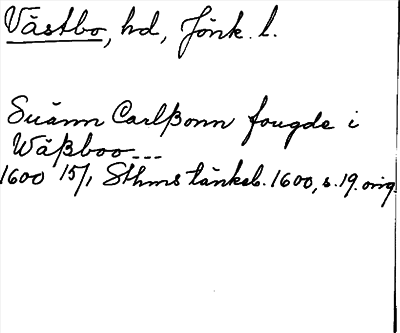 Västbo, hd, Jönk. l.
Suänn Carlßonn fougde i
Wäßboo---
1600 15/1 Sthms tänkeb. 1600, s. 19. orig.